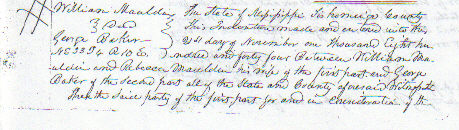 William Mauldin The State of Mississippi Tishomingo County
& Deed This Indenture made and entered into this
George Baker day of November one thousand eight hun
NE 33 S4 R10 E dred and forty four Between William Mau
ldin and Rebecca Mauldin his wife of the first part and George
Baker of the second part all of the State and County aforesaid Witnesseth
That the said party of the first part for and in consideration of the